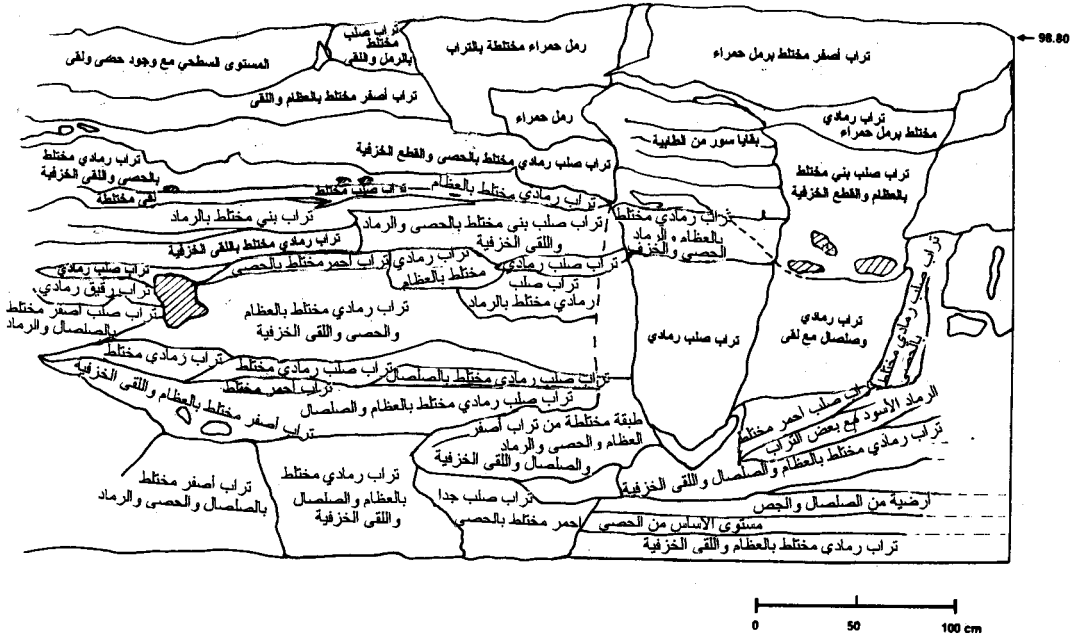 98.80
تراب صلب
مختلط
بالرمل واللقى
رمل حمراء مختلطة بالتراب
تراب أصفر مختلط برمل حمراء
المستوى السطحي مع وجود حصى ولقى
تراب أصفر مختلط بالعظام واللقى
رمل حمراء
تراب رمادي
مختلط برمل حمراء
بقايا سور من الطابية
تراب صلب رمادي مختلط بالحصى والقطع الخزفية
تراب رمادي مختلط
بالحصى واللقى الخزفية
تراب صلب بني مختلط
بالعظام و القطع الخزفية
تراب صلب مختلط
تراب رمادي مختلط بالعظام
لقى مختلطة
تراب بني مختلط بالرماد
تراب صلب بني مختلط بالحصى والرماد
و اللقى الخزفية
تراب رمادي مختلط
بالعظام و الرماد
الحصى و الخزف
تراب رمادي مختلط باللقى الخزفية
تراب صلب رمادي
تراب احمر مختلط بالحصى
تراب رمادي
مختلط بالعظام
تراب صلب رمادي
تراب صلب
رمادي مختلط بالرماد
تراب رقيق رمادي
تراب صلب اصفر مختلط
بالصلصال والرماد
تراب رمادي مختلط بالعظام
والحصى و اللقى الخزفية
تراب صلب رمادي
تراب رمادي
وصلصال مع لقى
تراب صلب رمادي مختلط
بالحصى
تراب رمادي مختلط
تراب صلب رمادي مختلط
تراب صلب رمادي مختلط بالصلصال
تراب احمر مختلط
تراب صلب رمادي مختلط بالعظام و الصلصال
تراب أصفر مختلط بالعظام واللقى الخزفية
طبقة مختلطة من تراب أصفر
العظام و الحصى و الرماد
والصلصال و اللقى الخزفية
تراب صلب احمر مختلط
الرماد الأسود مع بعض التراب
تراب رمادي مختلط بالعظام و الصلصال و اللقى الخزفية
تراب أصفر مختلط
بالصلصال و الحصى و الرماد
تراب رمادي مختلط
بالعظام و الصلصال
و اللقى الخزفية
تراب صلب جدا
احمر مختلط بالحصى
ارضية من الصلصال و الجص
مستوى الأساس من الحصى
تراب رمادي مختلط بالعظام و اللقى الخزفية
0 50 100 cm